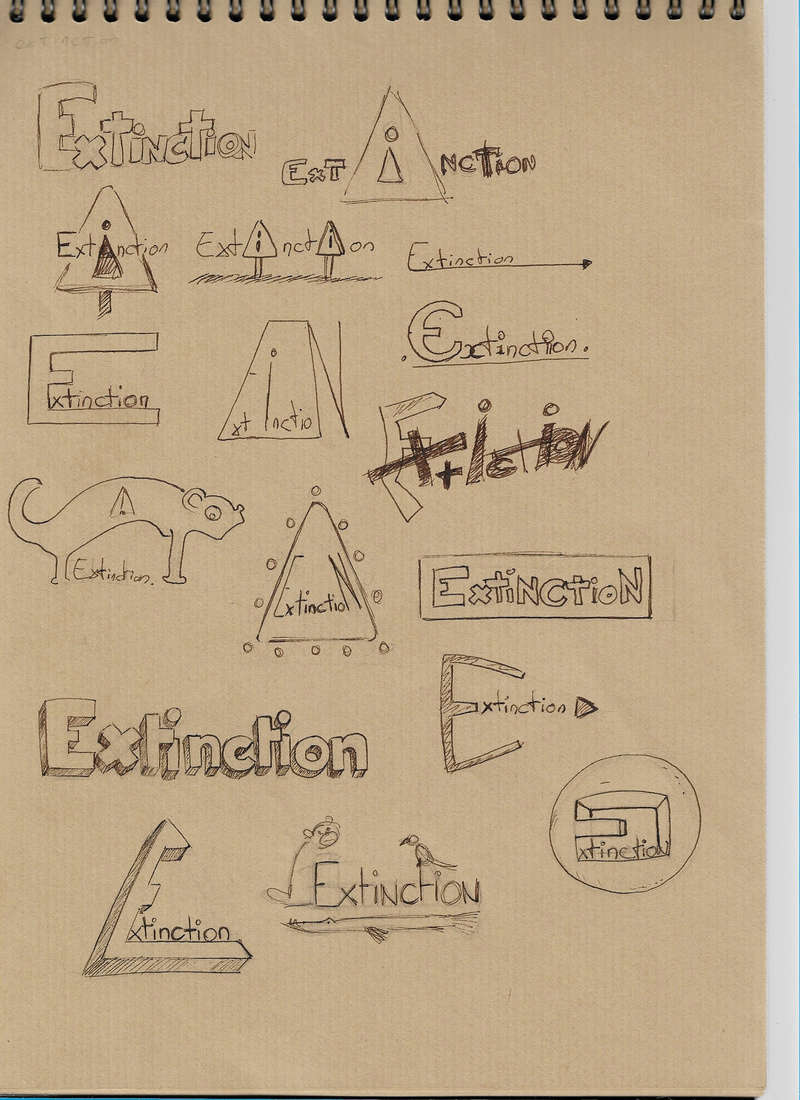 extinction
ExtiNctioN
ExTiNcTION
Extinction
Extinction
Extinction
Extinction.
Extinction
ExtinctioN
ExtictioN
Extinction.
ExtinctioN
ExtiNCtioN
Extinction
Extinction
ExtinctioN
ExtinctioN
Extinction